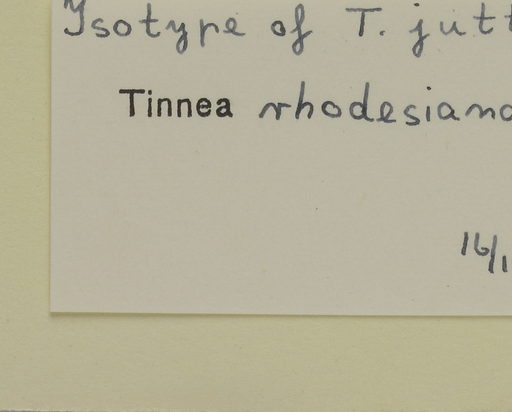 Isotype of T. jutt
Tinnea rhodesiana
16/1